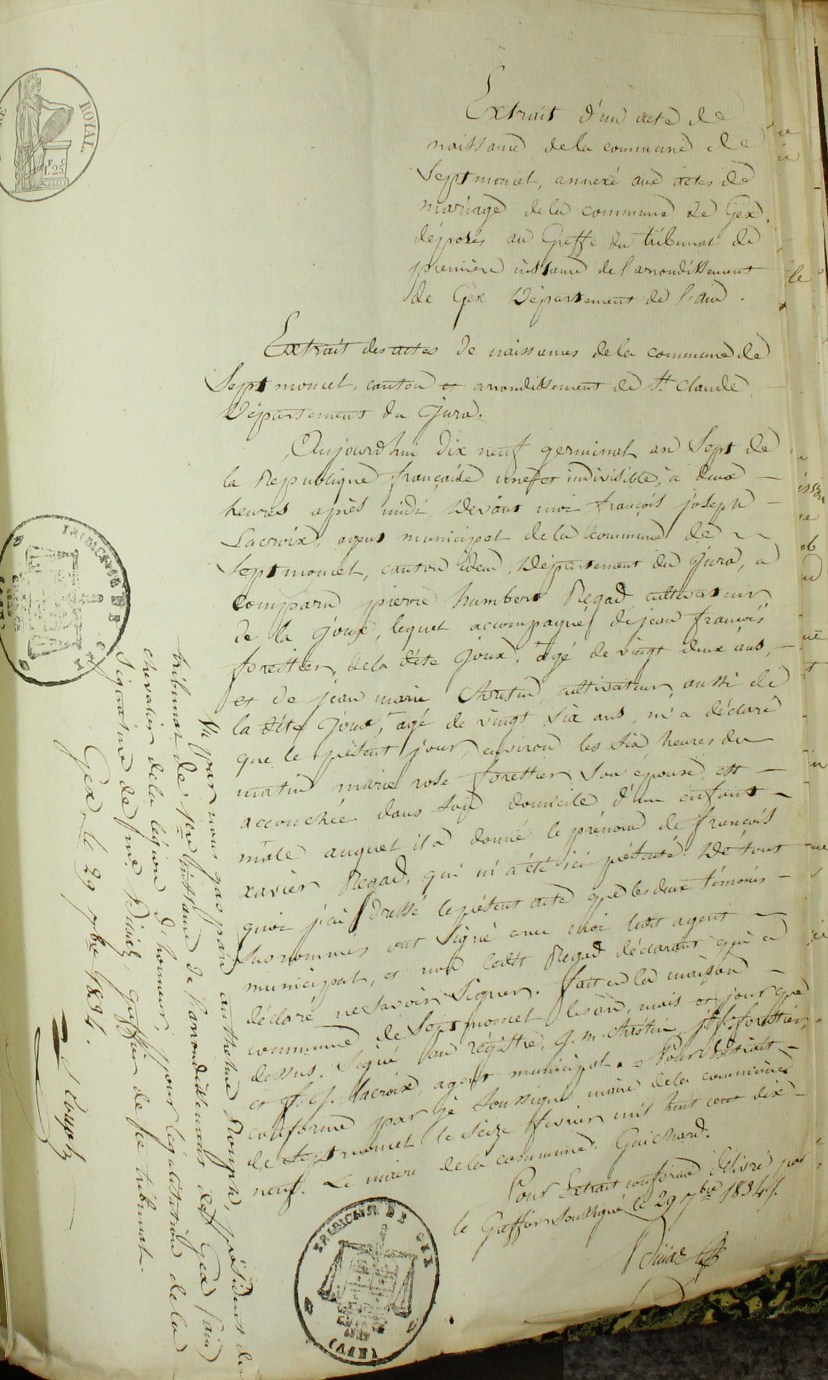 ROYAL
1f. 25c
Extrait d'un acte de
naissance de la commune de
Septmoncel, annexé aux actes de
mariage de la commune de Gex,
déposés au Greffe du tribunal de
première instance de l'arrondissement
de Gex Département de l'ain.
Extrait des actes de naissances de la commune de
Septmoncel, canton et arrondissement de St. Claude
Département du Jura.
Aujourd'hui dix neuf germinal an Sept de
la Republique française une et indivisible, à deux
heures après midi, Devant moi françois joseph
Lacroix, agent municipal de la commune de
Septmoncel, canton idem, Département du Jura, a
comparu pierre humbert Regad, cultivateur
de la joux, lequel accompagné de jean françois
forestier, de la dite joux, agé de vingt deux ans,
et de jean marie Chrestin cultivateur, aussi de
la dite Joux, agé de vingt six ans, m'a déclaré
que le présent jour, environ les six heures du
matin marie rose forestier son épouse est
accouchée dans son domicile d'un enfant
mâle auquel il a donné le prénom de françois
xavier Regad, qui m'a été ici présenté. De tout
quoi j'ai dressé le présent acte que les deux témoins
susnommés ont signé avec moi ledit agent
municipal, et non ledit Regad déclarant qui a
déclaré ne savoir signer. fait en la maison
commune de Septmoncel les an, mois et jour que
dessus. Signé au registre, j. m. Chrestin, j. f. forestier,
et f. j. Lacroix agent municipal. Pour extrait
conforme par je soussigné maire de la commune
de Septmoncel le seize fevrier mil huit cent dix
neuf. Le maire de la commune. Guichard.
Pour Extrait conforme délivré par
le Greffier soussigné, le 29 7bre 1834.
TRIBUNAL DE GEX
(AIN)
Vu par nous président du
tribunal de 1ere instance de l'arrondissement de Gex (ain)
chevalier de la légion d'honneur, pour légalisation de la
signature de greffier de ce tribunal.
Gex, le 29 7bre 1834.